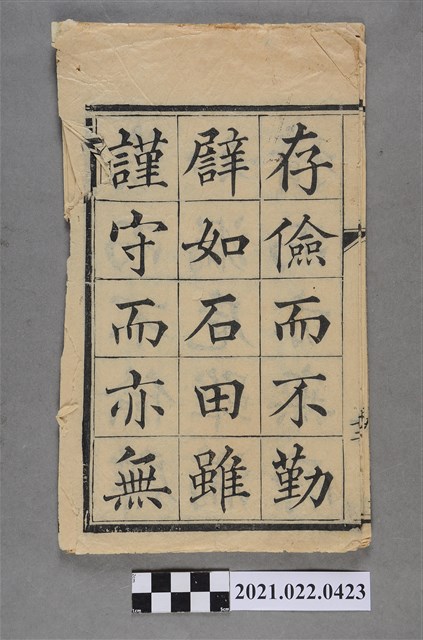 存儉而不勤
譬如石田雖
謹守而亦無
2021.022.0423